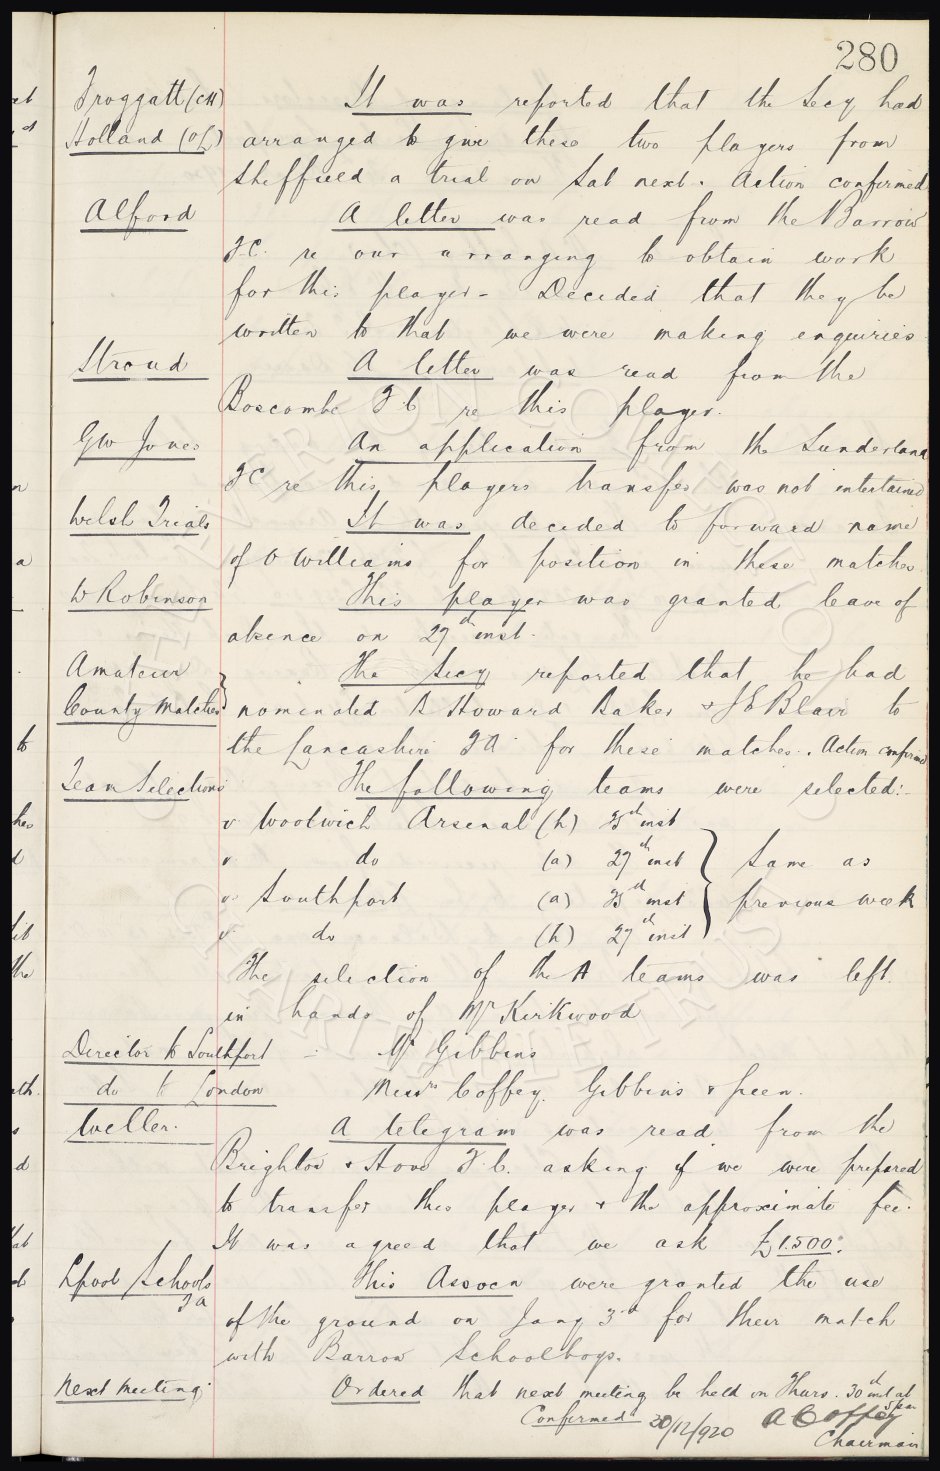 280
Froggatt (CH) It was reported that the Secy had
Holland (OL) arranged to give these two players from
Sheffield a trial on Sat next. Action confirmed
Alford A letter was read from the Barrow
F.C. re our arranging to obtain work
for this player - Decided that they be
written to that we were making enquiries.
Stroud A letter was read from the
Boscombe F.C re this player.
GW Jones An application from the Sunderland
FC re this players transfer was not entertained
Welsh Trials It was decided to forward name
of O Williams for position in these matches
W Robinson This player was granted leave of
absence on 27th inst.
Amateur The Secy reported that he had
County Matches } nominated B Howard Baker & J E Blair to
the Lancashire FA for these matches. Action confirmed
Team Selections The following teams were selected:-
v Woolwich Arsenal (h) 25th inst
v do (a) 27th inst } Same as
v Southport (a) 25th inst } previous week
v do (h) 27th inst
The selection of the A teams was left
in hands of Mr Kirkwood
Director to Southport - Mr Gibbins
do to London Messrs Coffey, Gibbins &
Weller. A telegram was read from the
Brighton & Hove F.C. asking if we were prepared
to transfer this player & the approximate fee.
It was agreed that we ask £1.500.
Lpool Schools This Assocn were granted the use
FA
of the ground on Jany 3rd for their match
with Barrow Schoolboys.
Next Meeting. Ordered that next meeting be held on Thurs. 30th inst at
Confirmed 20/12/920 A Coffey
Chairman